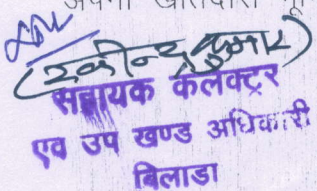 अपना खातेदारी
(रवीन्द्र कुमार)
सहायक कलेक्टर
एव उप खण्ड अधिकारी
बिलाडा